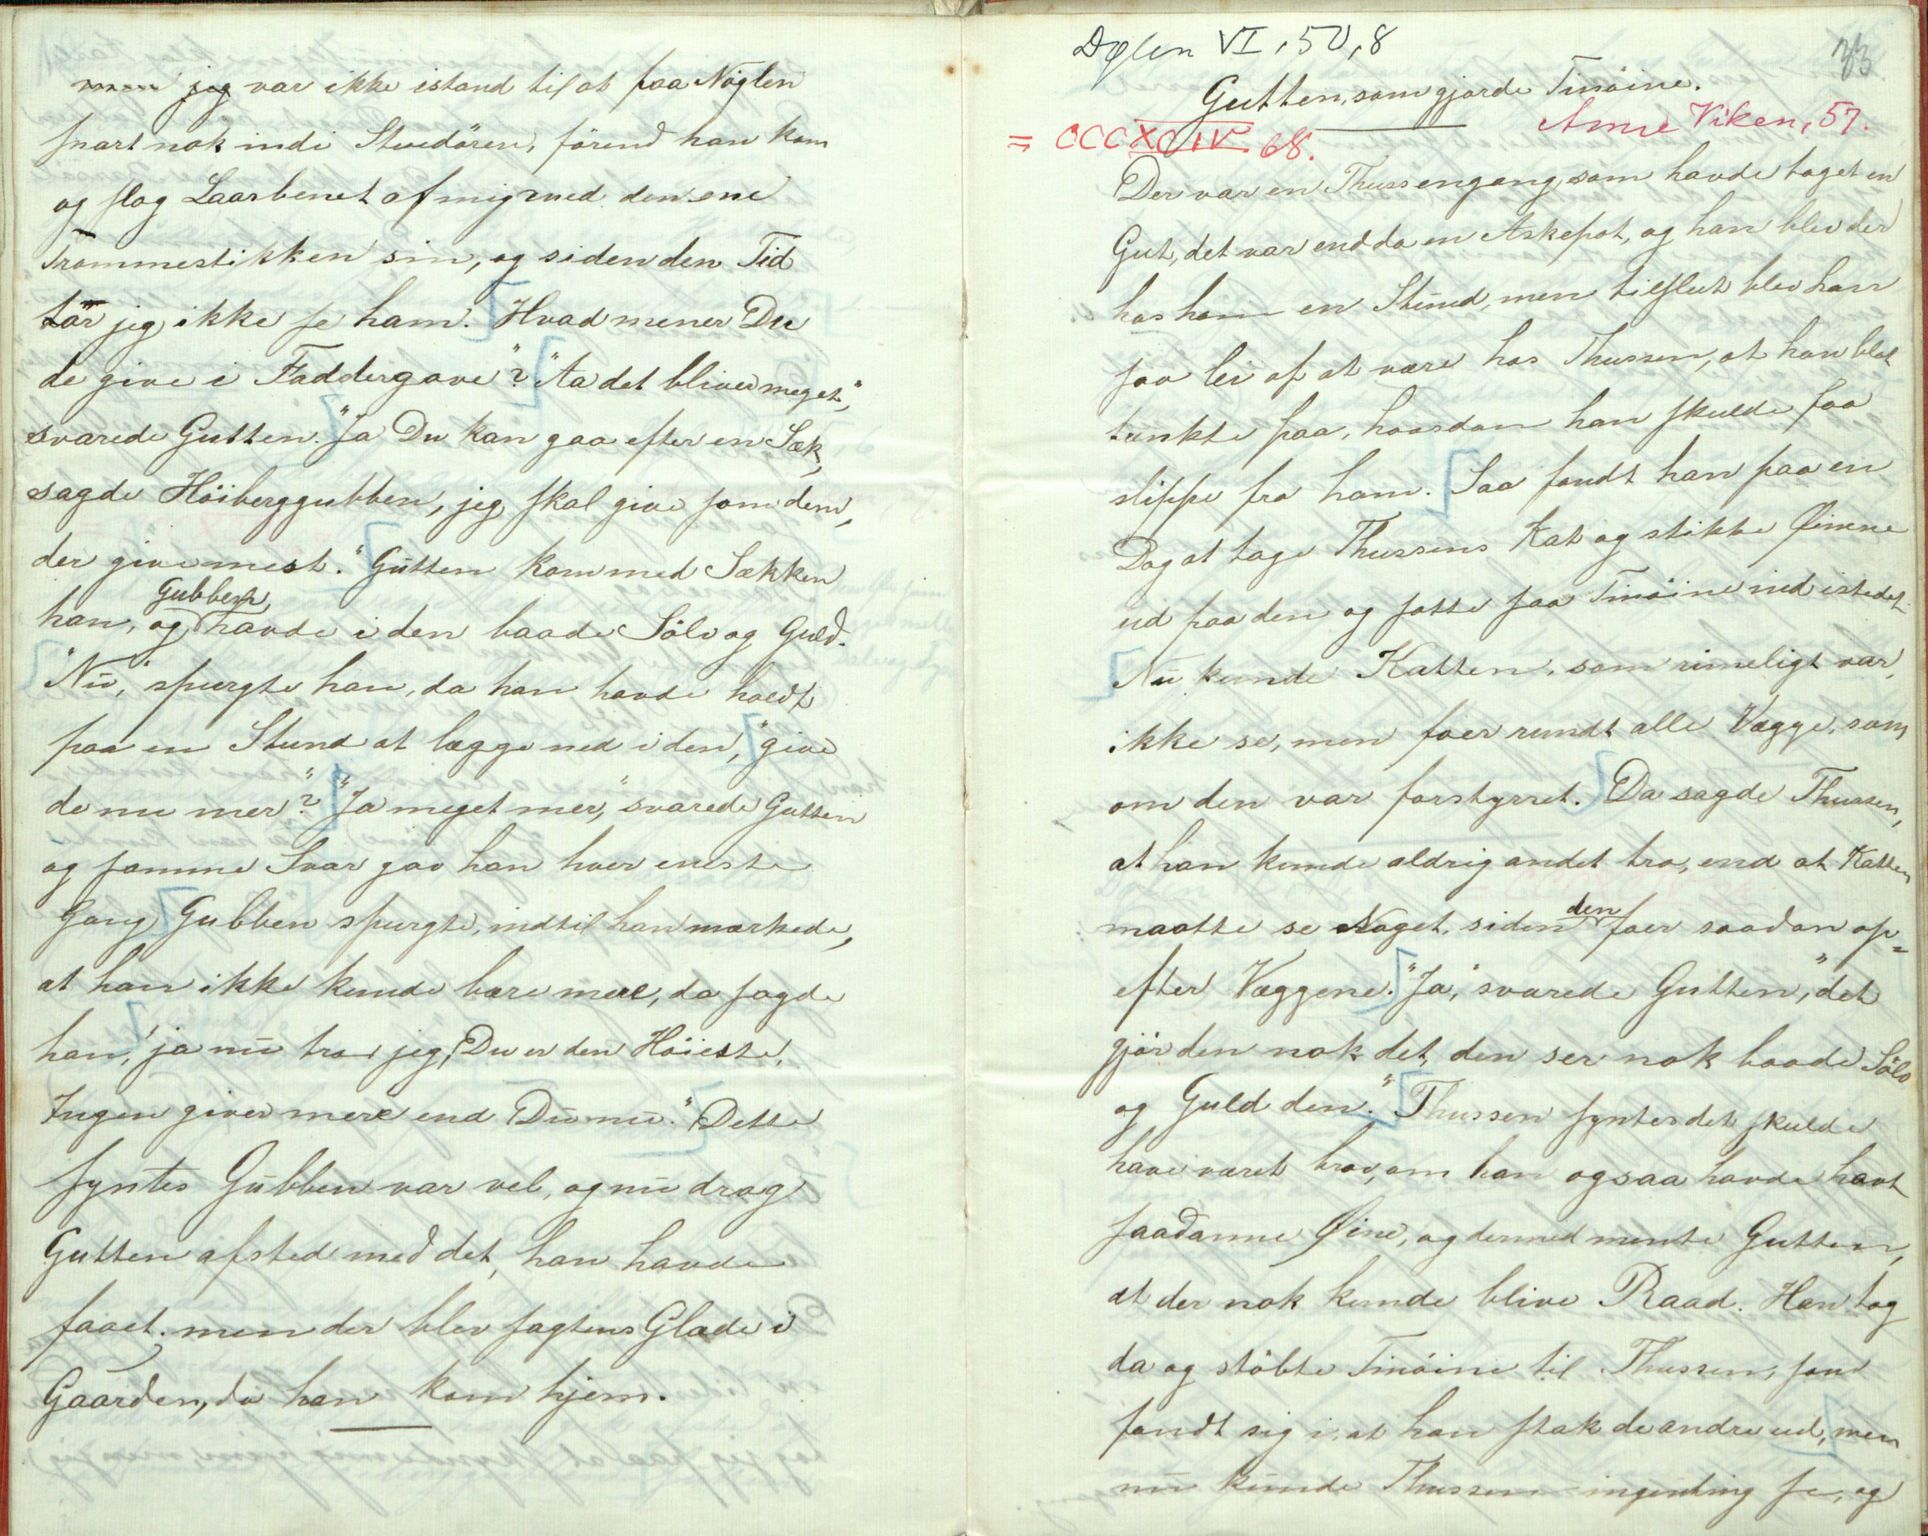 men jeg var ikke istand til at faa Nøglen
snart nok indi Stuedøren, førend han kom
og slog Laarbenet af mig med den ene
Trommestikken sin, og siden den Tid
tør jeg ikke se ham. Hvad mener Du
de give i Faddergave"? "Aa det bliver meget",
svarede Gutten. "Ja Du kan gaa efter en Sæk,
sagde Høiberggubben, jeg skal give som dem,
der give mest." Gutten kom med Sækken
Gubben
han, og havde i den baade Sølv og Guld.
"Nu", spurgte han, da han havde holdt
paa en Stund at lægge ned i den, "give
de nu mer"? "Ja meget mer", svarede Gutten
og samme Svar gav han hver eneste
Gang Gubben spurgte, indtil han mærkede,
at han ikke kunde bære mere, da sagde
han, "ja nu tror jeg, Du er den Høieste,
Ingen giver mere end Du nu." Dette
syntes Gubben var vel, og nu drog
Gutten afsted med det, han havde
faaet, men der blev sagtens Glæde i
Gaarden, da han kom hjem.
Dølen VI, 50, 8
33
Gutten, som gjorde Tinøine.
= CCCXCIV 68.
Anne Viken, 57.
Der var en Thuss engang, som havde taget en
Gut, det var endda en Askepot, og han blev der
hos ham en Stund, men tilslut blev han
saa lei af at være hos Thussen, at han blot
tænkte paa, hvordan han skulde faa
slippe fra ham. Saa fandt han paa en
Dag at tage Thussens Kat og stikke Øinene
ud paa den og satte saa Tinøine ind istedet.
Nu kunde Katten, som rimeligt var,
ikke se, men foer rundt alle Vægge, som
om den var forstyrret. Da sagde Thussen,
at han kunde aldrig andet tro, end at Katten
maatte se Noget, siden den foer saadan op-
efter Væggene. "Ja", svarede Gutten, "det
gjør den nok det, den ser nok baade Sølv
og Guld den." Thussen syntes det skulde
have været brav, om han ogsaa havde havt
saadanne Øine, og dermed mente Gutten,
at der nok kunde blive Raad. Han tog
da og støbte Tinøine til Thussen, som
fandt sig i, at han stak de andre ud, men
nu kunde Thussen ingenting se, og